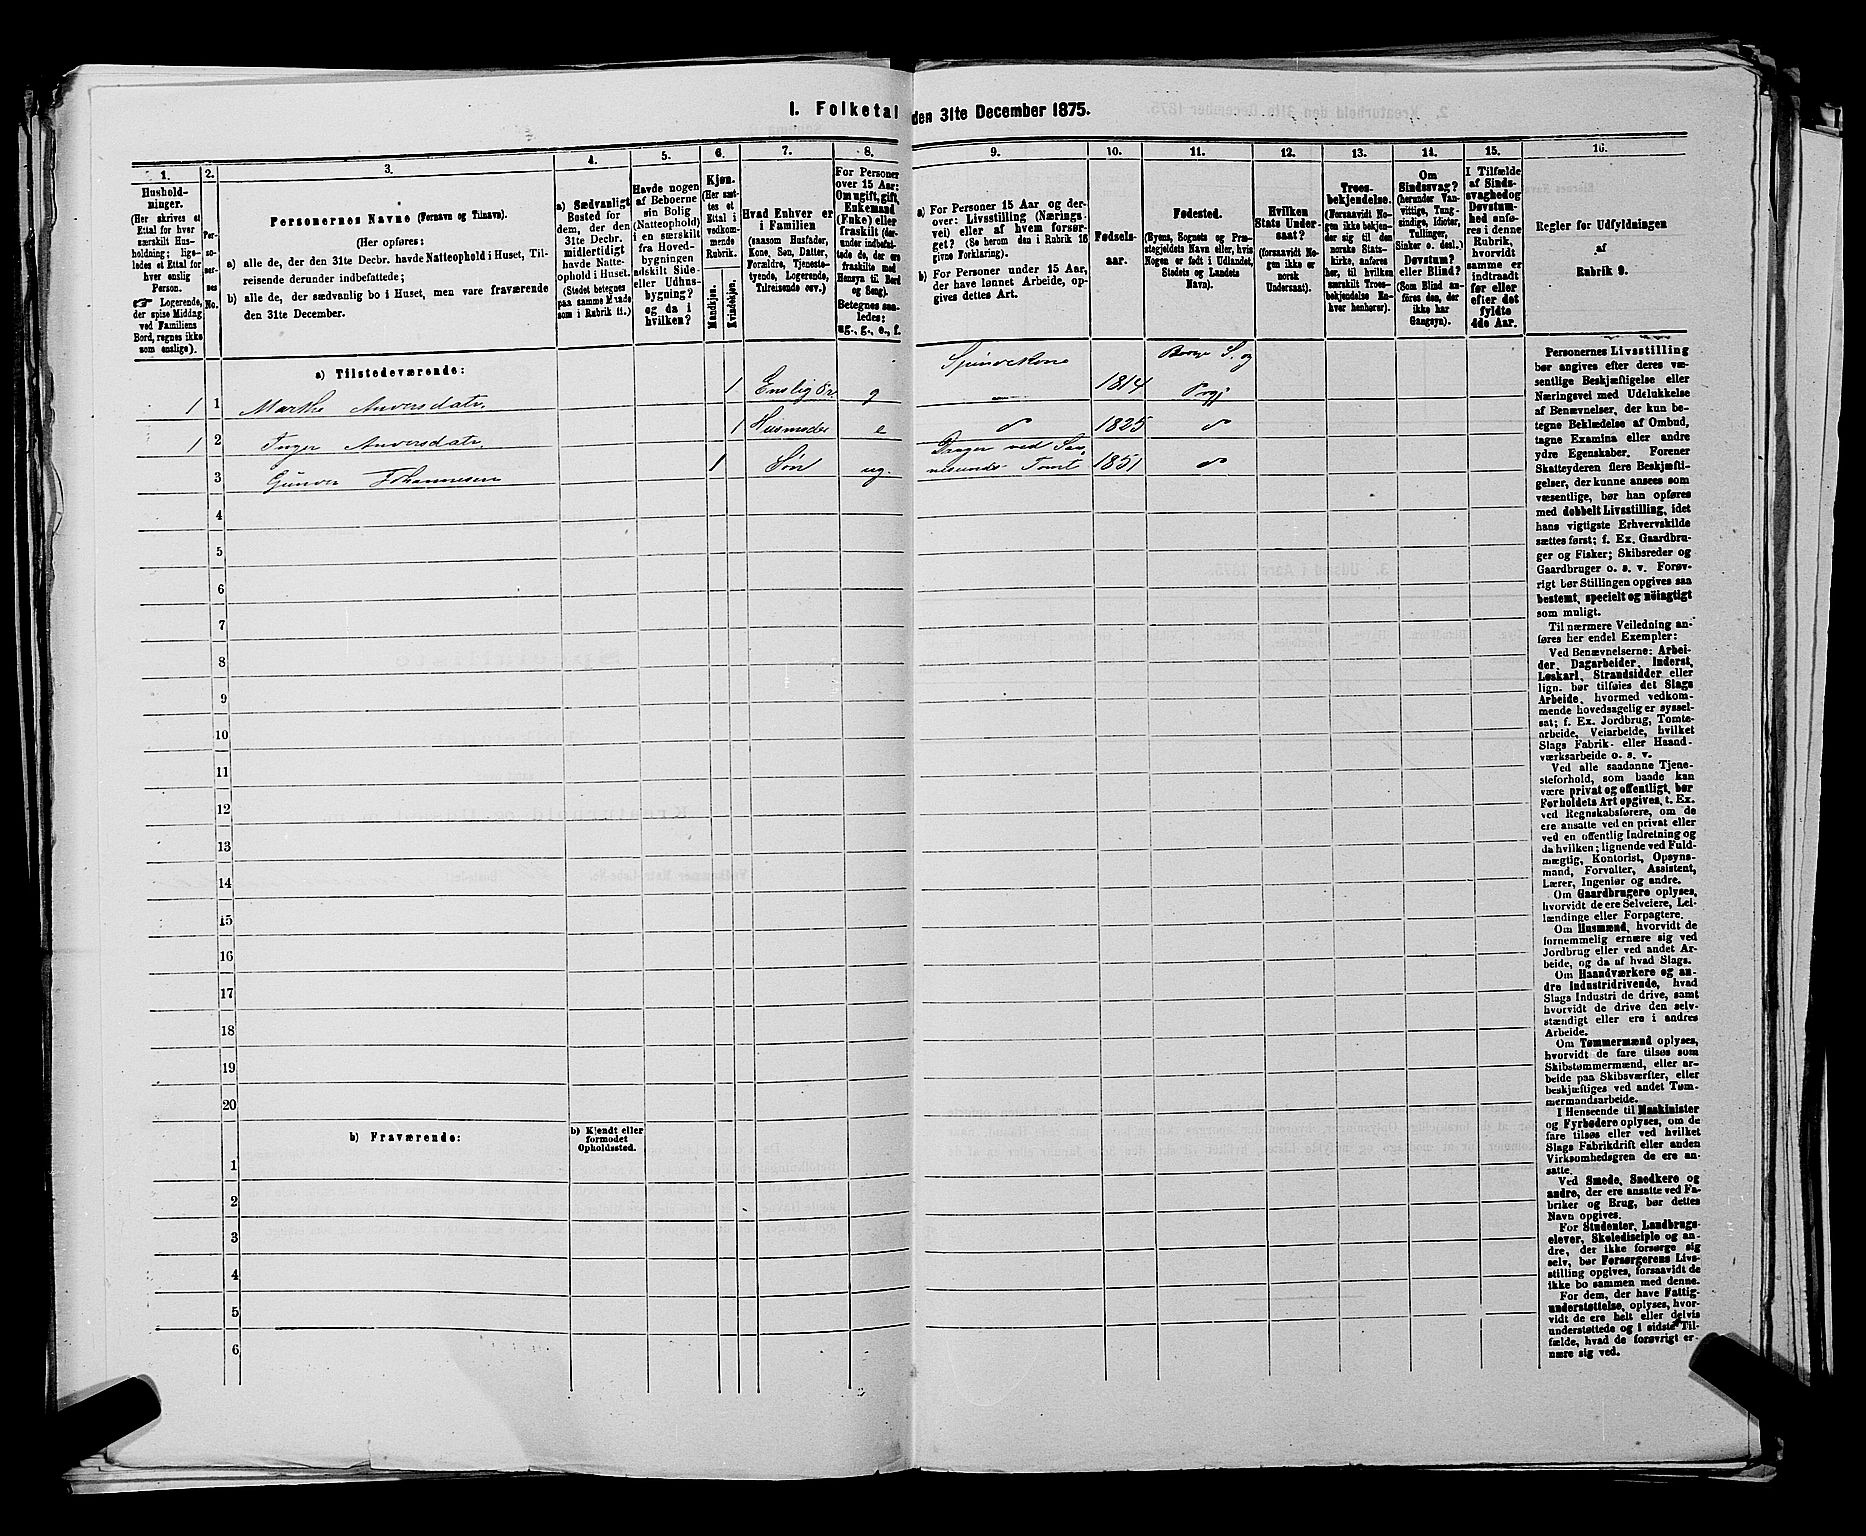 1. Folketal den 31te December 1875.
1.
2.
3.
4.
5.
6.
7.
8.
9.
10.
11.
12.
13.
14.
15.
16.
Hushold-
ninger.
(Her skrives et
Ettal for hver
særskilt Hus-
holdning; lige-
ledes et Ettal for
hver enslig
Person.
☞ Logerende,
der spise Middag
ved Familiens
Bord, regnes ikke
som enslige).
Per-
so-
ner-
nes
No.
Personernes Navne (Fornavn og Tilnavn).
(Her opføres:
a) alle de, der den 31te Decbr. havde Natteophold i Huset, Til-
reisende derunder indbefattede;
b) alle de, der sædvanlig bo i Huset, men vare fraværende
den 31te December.
a) Sædvanligt
Bosted for
dem, der den
31te Decbr.
midlertidigt
havde Natte-
ophold i Huset.
(Stedet betegnes
paa samme Maade
som i Rubrik 11.)
Havde nogen
af Beboerne
sin Bolig
(Natteophold)
i en særskilt
fra Hoved-
bygningen
adskilt Side-
eller Udhus-
bygning?
og da i
hvilken?
Kjøn.
(Her sæt-
tes et
Ettal i
vedkom-
mende
Rubrik.
Mandkjøn.
Kvindekjøn.
Hvad Enhver er
i Familien
(saasom Husfader,
Kone, Søn, Datter,
Forældre, Tjeneste-
tyende, Logerende,
Tilreisende osv.)
For Personer
over 15 Aar:
Om ugift, gift,
Enkemand
(Enke) eller
fraskilt (der-
under indbefat-
tede de, der ere
fraskilte med
Hensyn til Bord
og Seng).
Betegnes saa-
ledes:
ug., g., e., f.
a) For Personer 15 Aar og der-
over: Livsstilling (Nærings-
vei) eller af hvem forsør-
get? (Se herom den i Rubrik 16
givne Forklaring).
b) For Personer under 15 Aar,
der have lønnet Arbeide, op-
gives dettes Art.
Fødsels-
aar.
Fødested.
(Byens, Sognets og Præ-
stegjeldets Navn eller, hvis
Nogen er født i Udlandet,
Stedets og Landets
Navn).
Hvilken
Stats Under-
saat?
(forsaavidt No-
gen ikke er
norsk
Undersaat).
Troes-
bekjendelse.
(Forsaavidt No-
gen ikke bekjen-
der sig til den
norske Stats-
kirke, anføres
her, til hvilken
særskilt Troes-
bekjendelse En-
hver henhører).
Om
Sindssvag?
(herunder Van-
vittige, Tung-
sindige, Idioter,
Tullinger,
Sinker o. desl.)
Døvstum?
eller Blind?
(Som Blind an-
føres den, der
ikke har
Gangsyn).
I Tilfælde
af Sinds-
svaghed og
Døvstum-
hed anfø-
res i denne
Rubrik,
hvorvidt
samme er
indtraadt
før eller
efter det
fyldte
4de Aar.
Regler for Udfyldningen
af
Rubrik 9.
a) Tilstedeværende:
1 1 Marthe Anversdatr. 1 Enslig g Spindekone 1814 Borge S. og Prgj
1 2 Inger Anversdatr. 1 Husmoder e 1825
3 Gunder Johannesen 1 Søn ug. Drager ved Tomt 1851
4
5
6
7
8
9
10
11
12
13
14
15
16
17
18
19
20
b) Fraværende:
b) Kjendt eller
formodet
Opholdssted.
1
2
3
4
5
6
Personernes Livsstilling
bør angives efter deres væ-
sentlige Beskjæftigelse eller
Næringsvei med Udelukkelse
af Benævnelser, der kun be-
tegne Beklædelse af Ombud,
tagne Examina eller andre
ydre Egenskaber. Forener
Skatteyderen flere Beskjæfti-
gelser, der kunne ansees som
væsentlige, bør han opføres
med dobbelt Livsstilling, idet
hans vigtigste Erhvervskilde
sættes først; f. Ex. Gaardbru-
ger og Fisker; Skibsreder og
Gaardbruger o. s. v. Forøv-
rigt bør Stillingen opgives saa
bestemt, specielt og nöiagtigt
som muligt.
Til nærmere Veiledning an-
føres her endel Exempler:
Ved Benævnelserne: Arbei-
der, Dagarbeider, Inderst,
Løskarl, Strandsidder eller
lign. bør tilføies det Slags
Arbeide, hvormed vedkom-
mende hovedsagelig er syssel-
sat; f. Ex. Jordbrug, Tomte-
arbeide, Veiarbeide, hvilket
Slags Fabrik- eller Haand-
værksarbeide o. s. v.
Ved alle saadanne Tjene-
steforhold, som baade kan
være privat og offentligt, bør
Forholdets Art opgives, t. Ex.
ved Regnskabsførere, om de
ere ansatte ved en privat eller
ved en offentlig Indretning og
da hvilken; lignende ved Fuld-
mægtig, Kontorist, Opsyns-
mand, Forvalter, Assistent,
Lærer, Ingeniør og andre.
Om Gaardbrugere oplyses,
hvorvidt de ere Selveiere, Lei-
lændinge eller Forpagtere.
Om Husmænd, hvorvidt de
fornemmelig ernære sig ved
Jordbrug eller ved andet Ar-
beide, og da af hvad Slags.
Om Haandværkere og an-
dre Industridrivende, hvad
Slags Industri de drive, samt
hvorvidt de drive den selv-
stændigt eller ere i andres
Arbeide.
Om Tømmermænd oplyses,
hvorvidt de fare tilsøs som
Skibstømmermænd, eller ar-
beide paa Skibsværfter, eller
beskjæftiges ved andet Tøm-
mermandsarbeide.
I Henseende til Maskinister
og Fyrbødere oplyses, om de
fare tilsøs eller ved hvilket
Slags Fabrikdrift eller anden
Virksomhedsgren de ere an-
satte.
Ved Smede, Snedkere og
andre, der ere ansatte ved Fa-
briker og Brug, bør dettes
Navn opgives.
For Studenter, Landbrugs-
elever, Skoledisciple og an-
dre, der ikke forsørge sig
selv, bør Forsørgerens Livs-
stilling opgives, forsaavidt de
ikke bo sammen med denne.
For dem, der have Fattig-
understøttelse, oplyses, hvor-
vidt de ere helt eller delvis
understøttede og i sidste Til-
fælde, hvad de forøvrigt er-
nære sig ved.